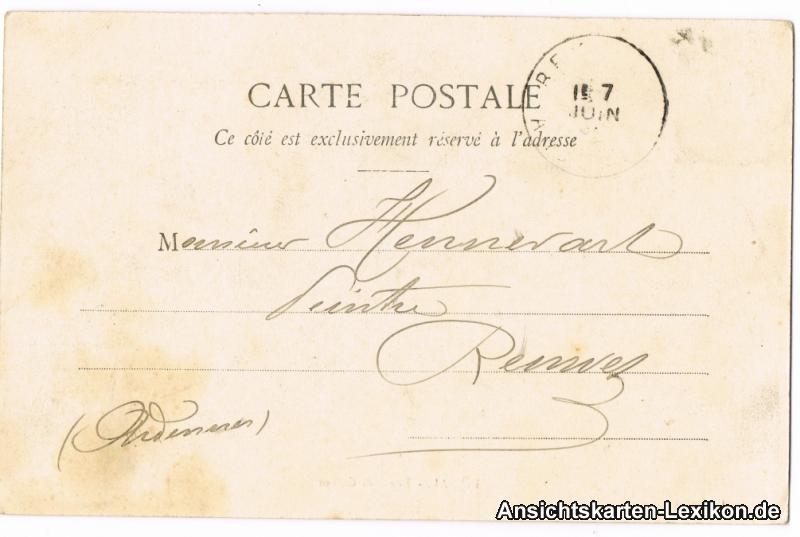 CARTE POSTALE
Ce côté est exclusivement réservé à l'adresse
7
JUIN
Monsieur Hennevart
Peintre
Renwez
(Ardennes)
Ansichtskarten-Lexikon.de